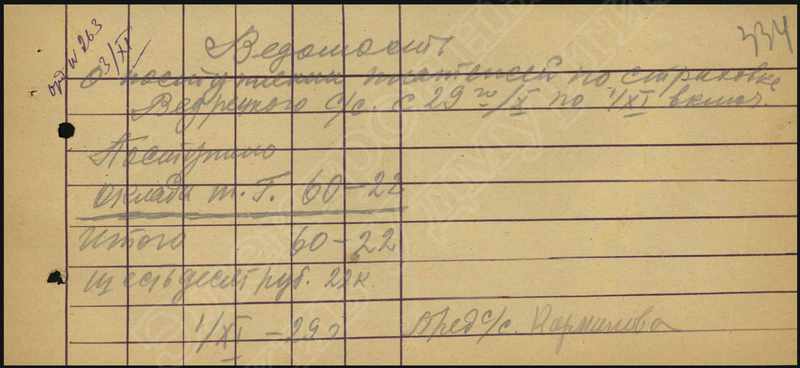 334
орд N 263
3/XI
Ведомость
О поступлении платежей по страховке
с/с. с 29 го/X по 1/XI включ
Поступило
Оклада т. г. 60-22
Итого 60-22
шестьдесят руб. 22 к.
1/XI - 29 г Пред с/с.